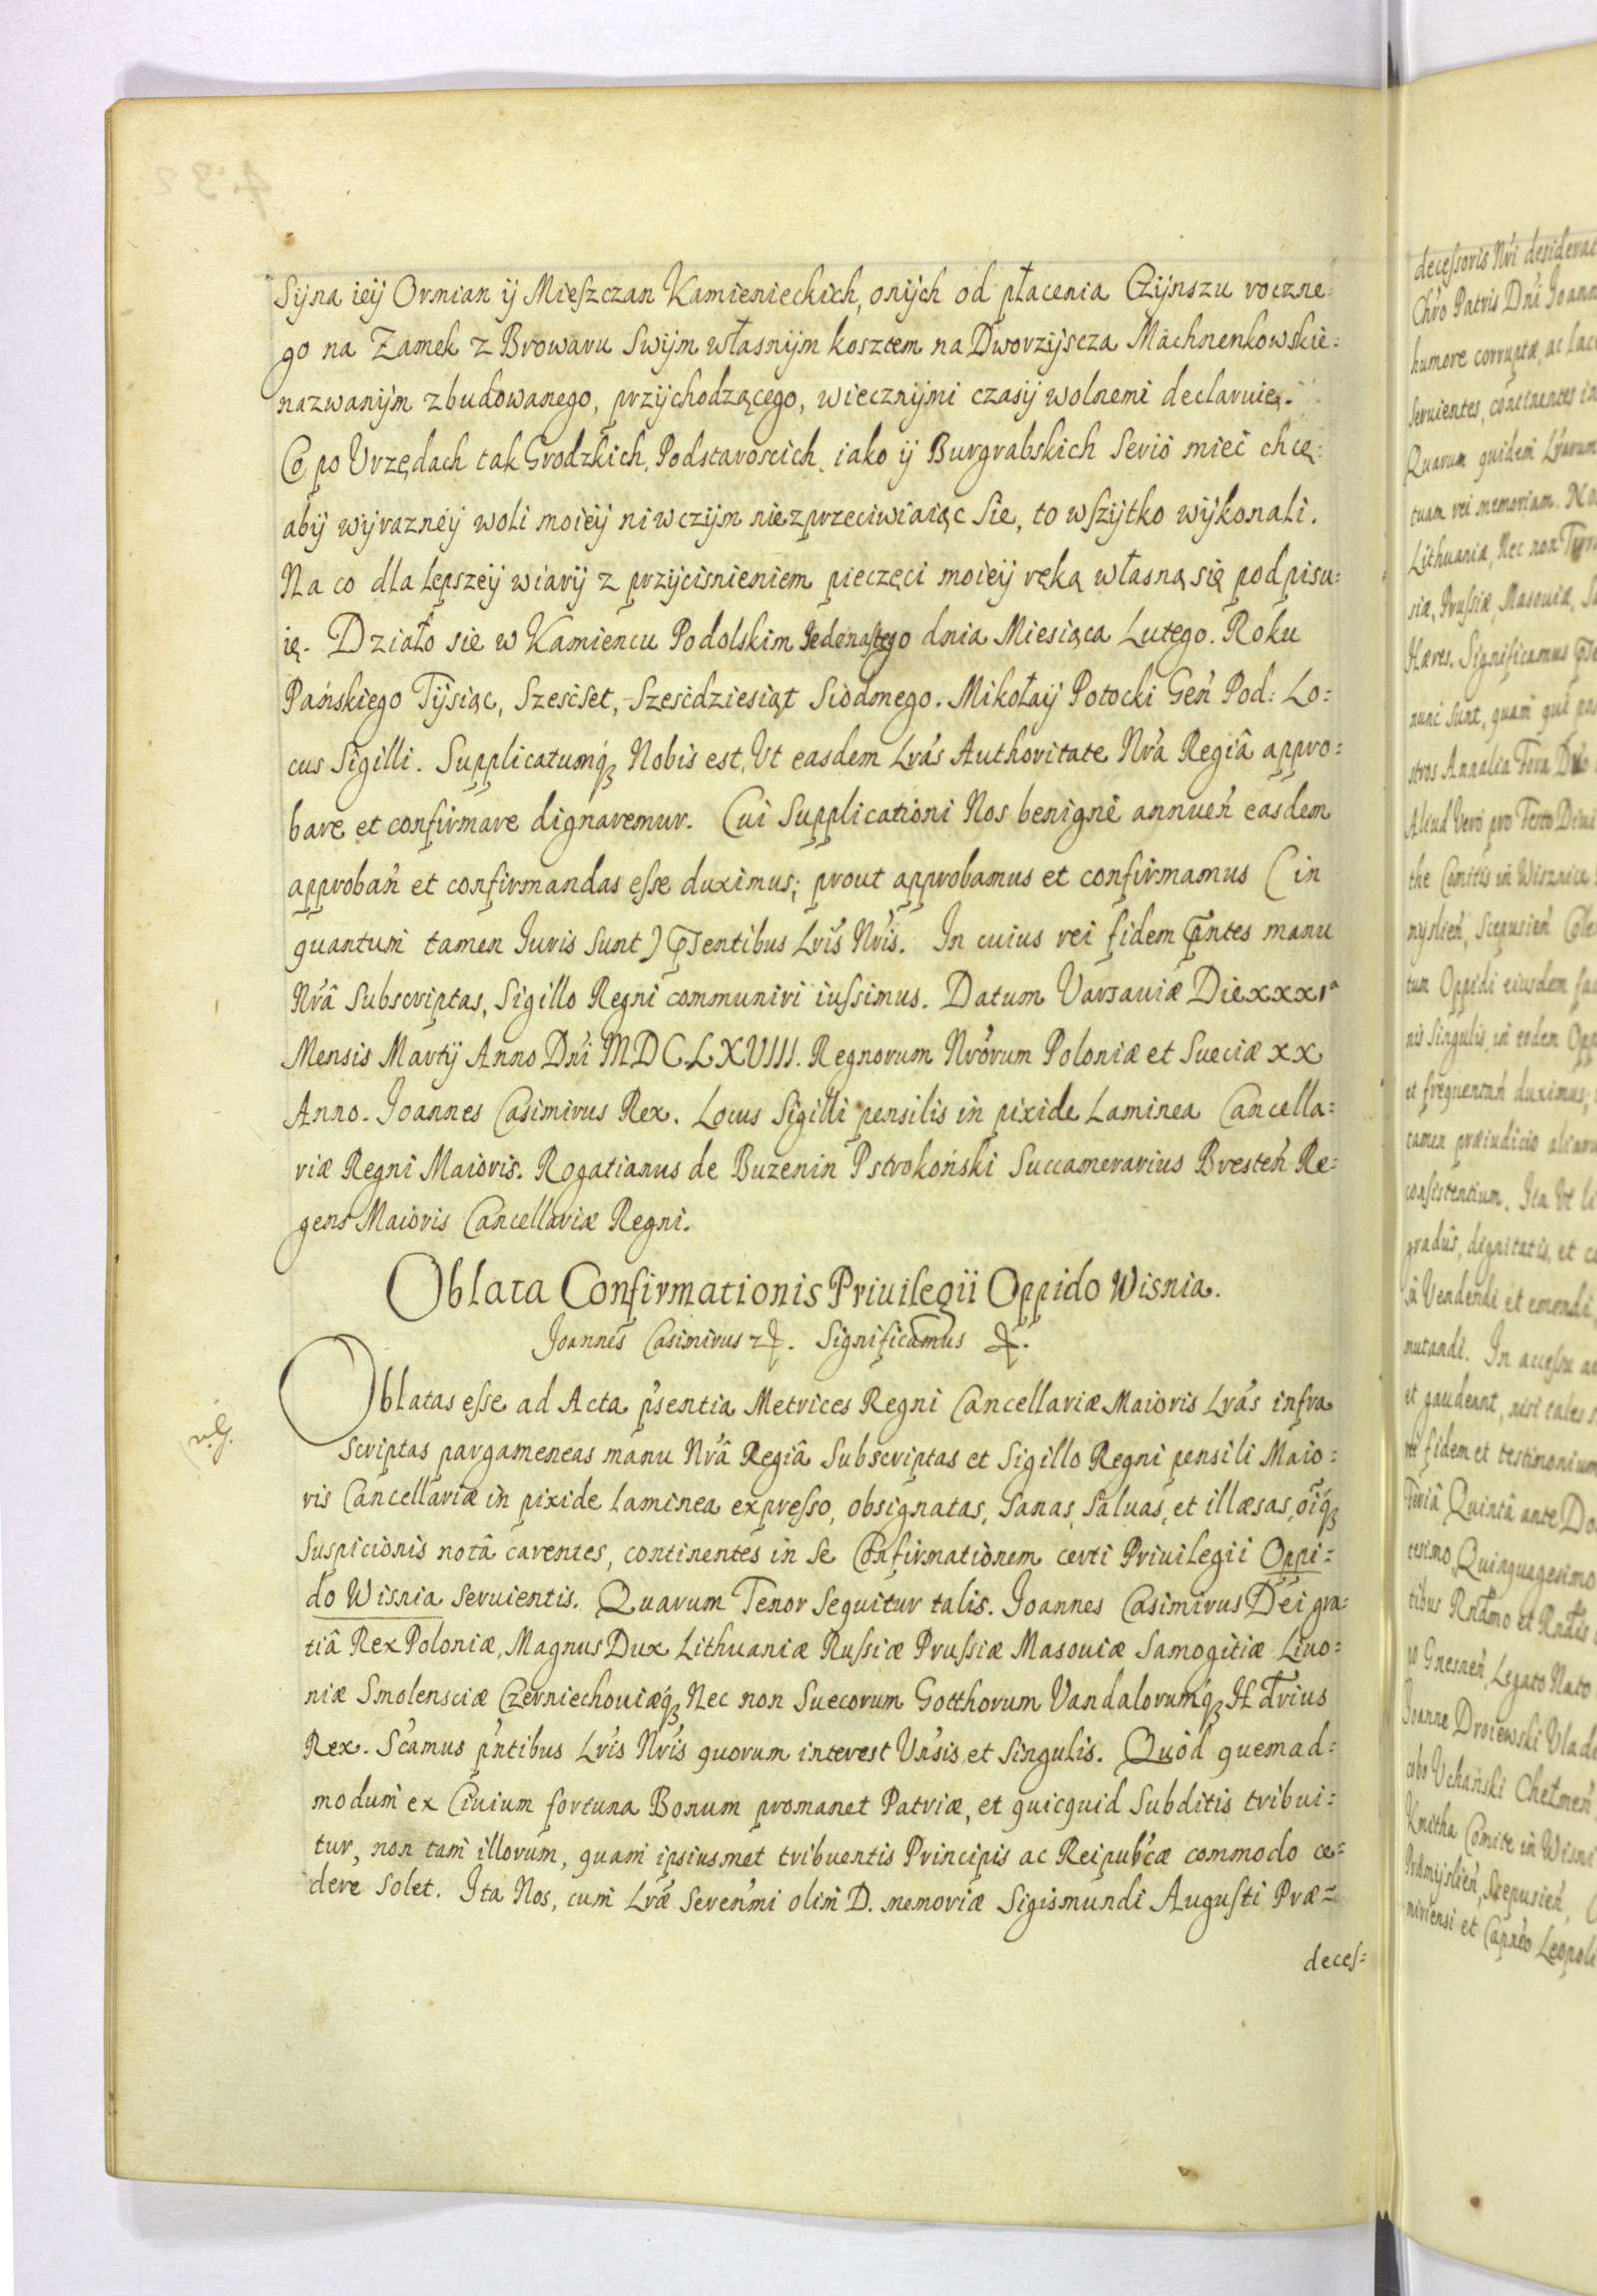 Syna ieÿ Ormian ÿ Mieszczan Kamienieckich, onÿch od płacenia Czÿnszu roczne:
go na Zamek z Browaru Swÿm własnÿm kosztem na Dworzÿscza Machnenkowskie:
nazwanÿm zbudowanego, przÿchodzącego, wiecznÿmi czasÿ wolnemi declaruię.
Co po Vrzędach tak Grodzkich, Podstaroscich, iako ÿ Burgrabskich serio mieć chcę:
abÿ wÿrazneÿ woli moieÿ niwczÿm niezprzeciwiaiąc sie, to wszÿtko wÿkonali.
Na co dla lepszeÿ wiarÿ z przÿcisnieniem pieczęci moieÿ ręką własną się podpisu:
ię. Działo sie w Kamiencu Podolskim Jedenastego dnia Miesiąca Lutego. Roku
Pańskiego Tÿsiąc, Szesćset, Szesćdziesiąt Siodmego. Mikołaÿ Potocki Geń Pod: Lo:
cus Sigilli. Supplicatumq́ȝ Nobis est, Vt easdem Lrás Authoritate Nrá Regiâ appro:
bare et confirmare dignaremur. Cui Supplicationi Nos benignè annueń easdem
approbań et confirmandas esse duximus; prout approbamus et confirmamus (in
quantum tamen Juris sunt) p̃sentibus Lrís Nrís. In cuius rei fidem p̃ntes manu
Nrâ subscriptas, Sigillo Regni communiri iussimus. Datum Varsauiæ Die xxx1ª
Mensis Martÿ Anno Dńi MDCLXVIII. Regnorum Nrórum Poloniæ et Sueciæ xx
Anno. Joannes Casimirus Rex. Locus Sigilli pensilis in pixide Laminea Cancella:
riæ Regni Maioris. Rogatianus de Buzenin Pstrokoński Succamerarius Bresteń Re:
gens Maioris Cancellariæ Regni.
Oblata Confirmationis Priuilegii Oppido Wisnia.
Joannes Casimirus . Significamus .
Oblatas esse ad Acta pśentia Metrices Regni Cancellariæ Maioris Lrás infra
scriptas pargameneas manu Nrâ Regiâ Subscriptas et Sigillo Regni pensili Maio:
ris Cancellariæ in pixide laminea expresso, obsignatas, sanas, saluas, et illæsas, oíq́ȝ
suspicionis notâ carentes, continentes in se Confirmationem certi Priuilegii Oppi:
do Wisnia seruientis. Quarum Tenor sequitur talis. Joannes Casimirus Dei gra:
tiâ Rex Poloniæ, Magnus Dux Lithuaniæ Russiæ Prussiæ Masouiæ Samogitiæ Liuo:
niæ Smolensciæ Czerniechouiæq́ȝ Nec non Suecorum Gotthorum Vandalorumq́ȝ
Rex. Sćamus pńtibus Lrís Nrís quorum interest Vńsis et Singulis. Quòd quemad:
modum ex Ciuium fortuna Bonum promanet Patriæ, et quicquid Subditis tribui:
tur, non tam illorum, quam ipsiusmet tribuentis Principis ac Reipubćæ commodo ce:
dere solet. Ita Nos, cum Lrǽ Sereńmi olim D. memoriæ Sigismundi Augusti Præ:
deces:
decessoris Nri
Chró Patris Dńi Joann
humore corruptæ, ac
seruientes, continentes in
Quarum quidem Lrárum
tuam rei memoriam.
Lithuaniæ, Nec non
siæ, Prussiæ, Masouiæ,
Hæres. Significamus
nunc sunt, quam qui
stros Annalia Fora
Aliud Verò pro Festo Diui
the Comitis in Wisznice
Scepusień
tum Oppidi eiusdem
nis Singulis, in eodem
et frequentań duximus;
tamen præiudicio
consistentium. Ita Vt
gradûs, dignitatis, et
Vendendi et emendi
mutandi. In accessu
et gaudeant, nisi tales
rei fidem et testimonium
Feriâ Quintâ ante
Quinquagesimo
tibus
Gneseń Legato Nato
Joanne Droiewski
Vchański Chełmeń
Kmitha Comite in
Scepusień